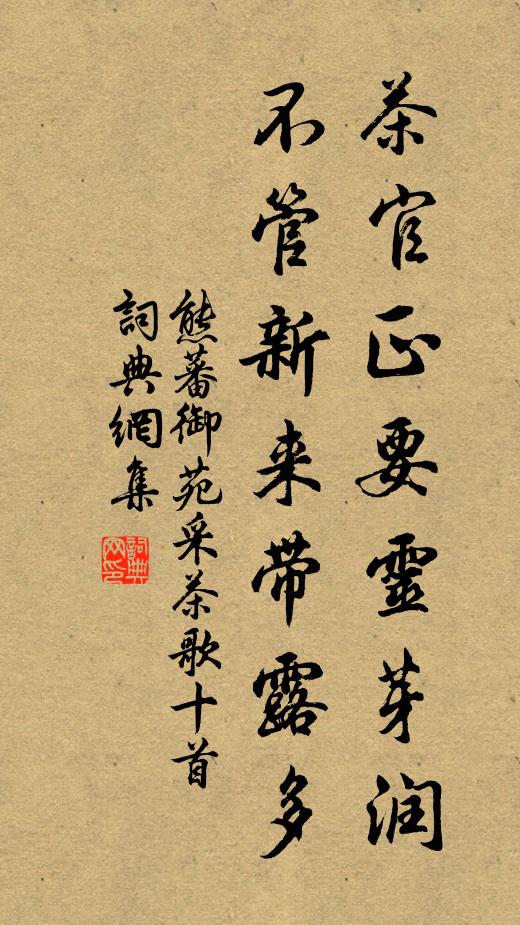 茶官正要靈芽润
不管新来带露多
熊蕃御苑采茶歌十首
詞典網集
詞典网印